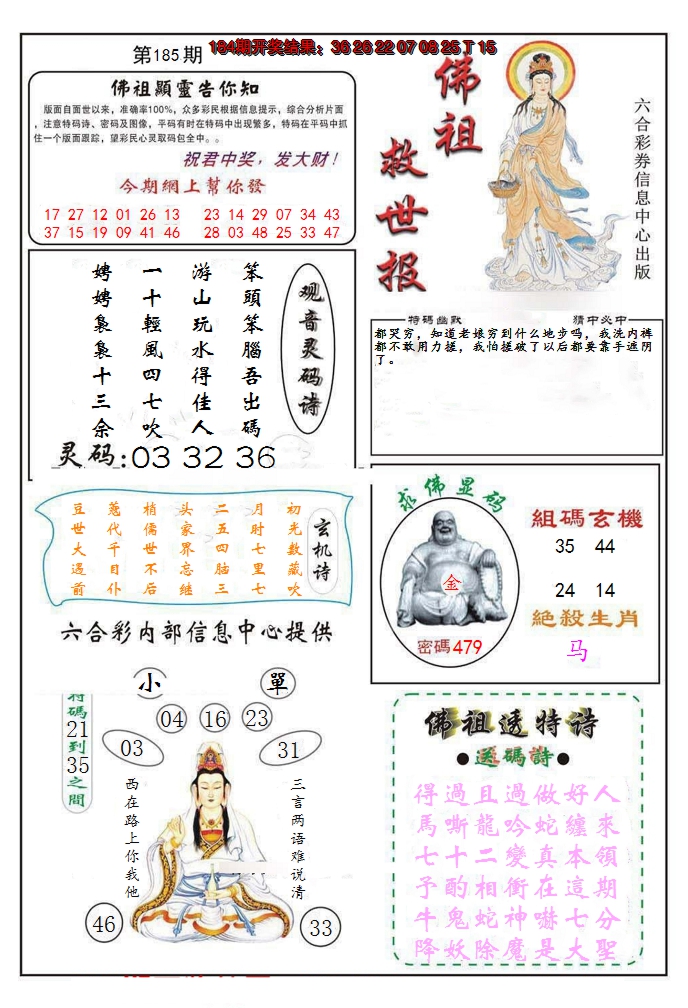 第185期
184期开奖结果：36 26 22 07 08 25 T 15
佛祖顯靈告你知
版面自面世以来，准确率100%，众多彩民根据信息提示，综合分析片面
，注意特码诗、密码及图像，平码有时在特码中出现繁多，特码在平码中抓
住一个版面跟踪，望彩民心灵取码包全中。。
祝君中奖，发大财！
今期網上幫你發
17 27 12 01 26 13 23 14 29 07 34 43
37 15 19 09 41 46 28 03 48 25 33 47
佛祖
救世报
六合彩券信息中心出版
观音灵码诗
笨頭笨腦吾出碼
游山玩水得佳人
一十輕風四七吹
娉娉裊裊十三余
灵码:03 32 36
特码幽默
猜中必中
都哭穷，知道老娘穷到什么地步吗，我洗内裤
都不敢用力搓，我怕搓破了以后都要靠手遮阴
了。
玄机诗
初光数藏吹
月时七里七
二五四脑三
头家界忘继
梢儒世不后
蔥代千目仆
豆世大遇前
六合彩内部信息中心提供
求佛显码
金
密碼479
組碼玄機
35 44
24 14
絶殺生肖
马
小
單
特碼21到35之間
04 16 23
03
31
西在路上你我他
三言两语难说清
46
33
佛祖透特诗
●送碼詩●
得過且過做好人
馬嘶龍吟蛇纏來
七十二變真本領
予酌相衝在這期
牛鬼蛇神嚇七分
降妖除魔是大聖